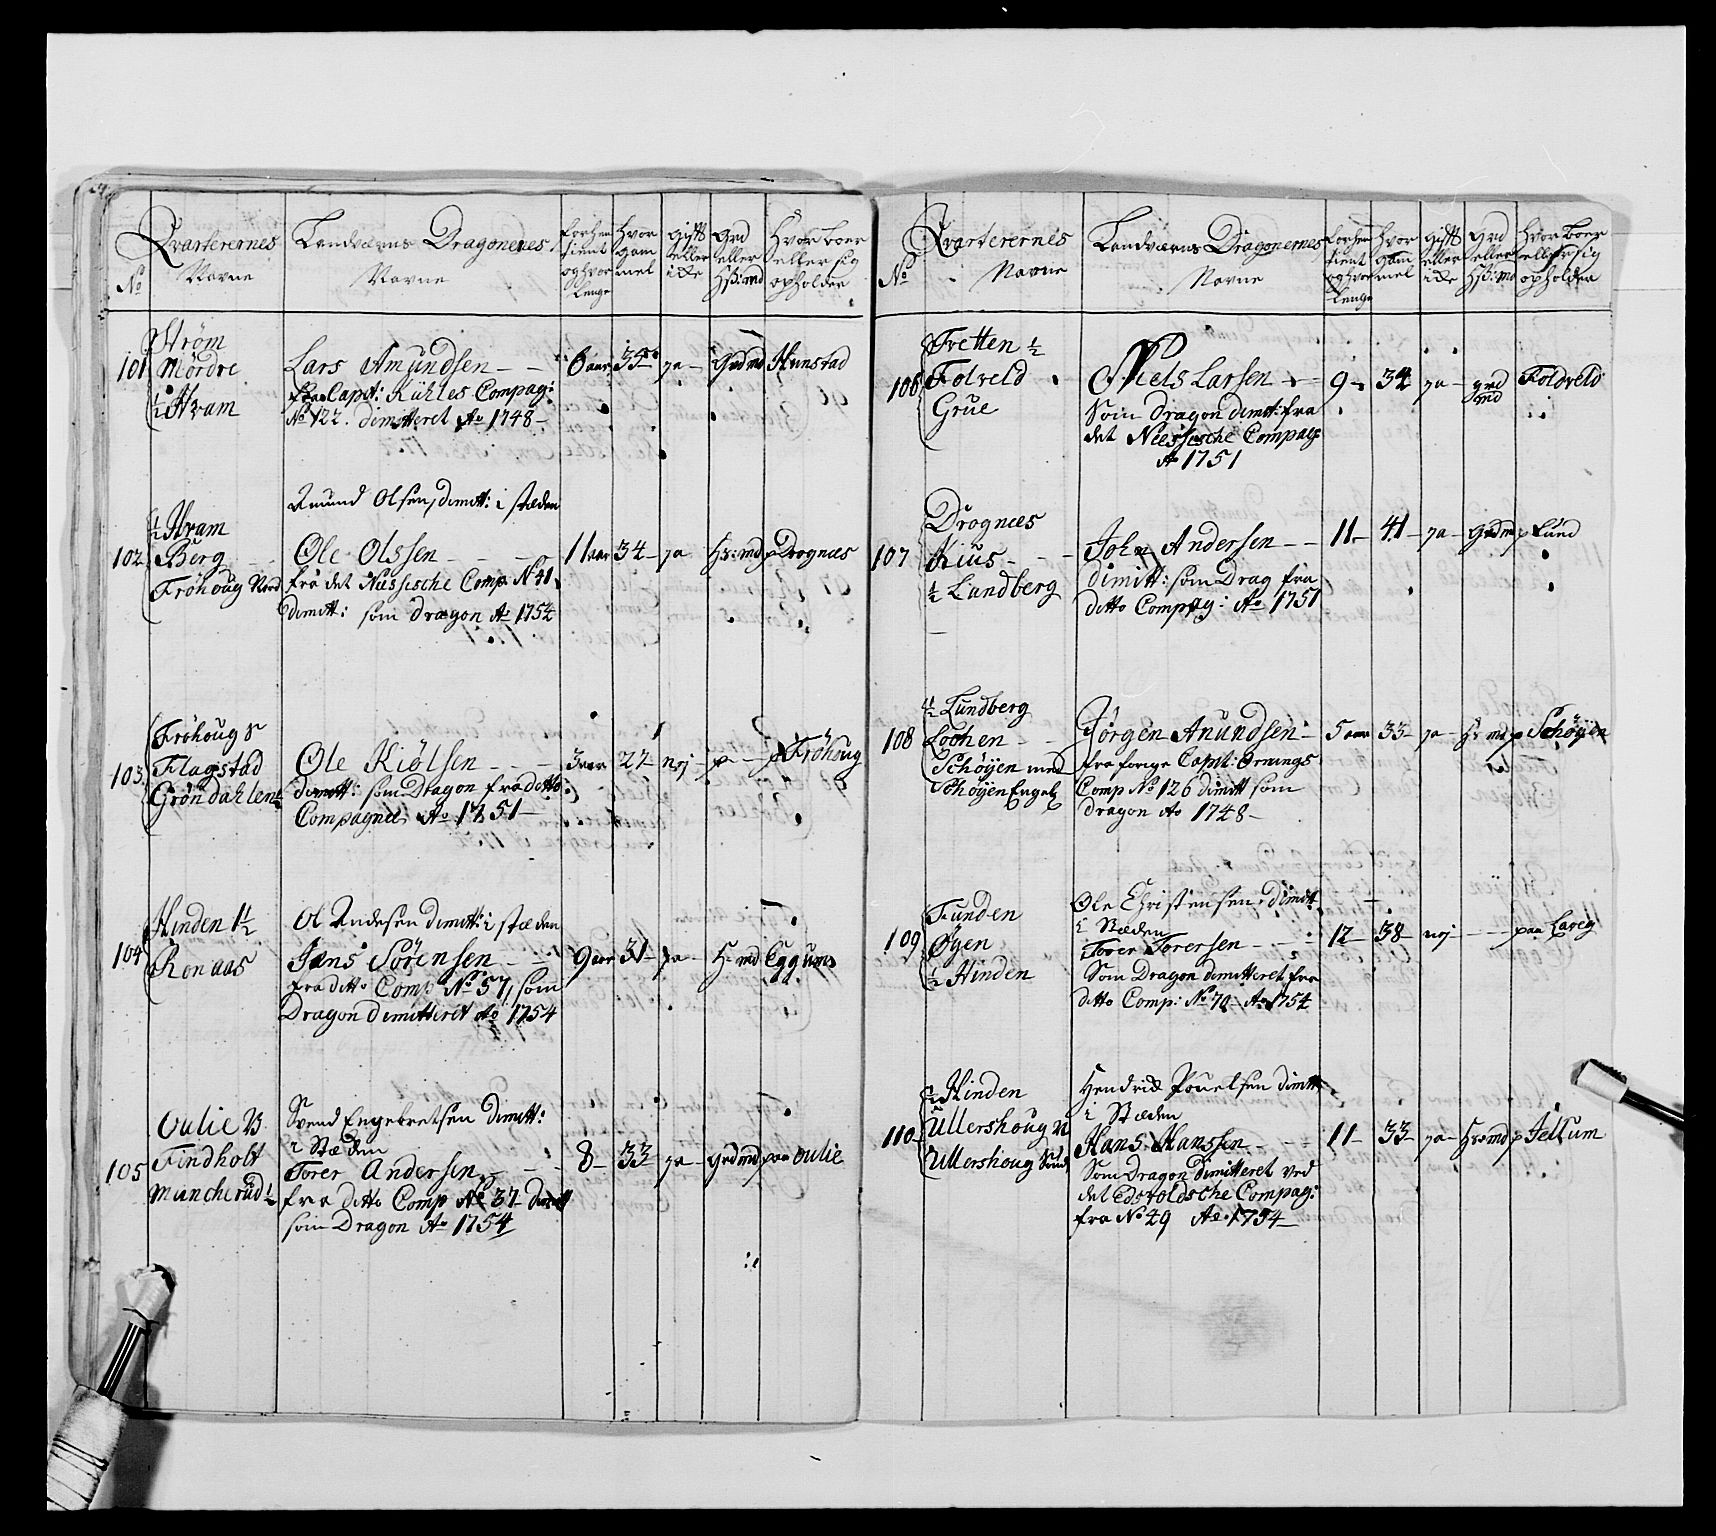 No
Qvarterernes
Navne
Landværns Dragonernes
Navne
forhen
tient
og hvor
Lenge
Hvor
gam
mel
gift
eller
icke
Grd
eller
Hß:md
Hvor boer
eller sig
opholder
101
Strøm
Mørdre
½ Hvam
Lars Amundsen
fra Capit: Kühles Compag:
No 122. dimitteret Ao 1748
6 aar
35
ja
Grdmd
Hunstad
102
½ Hvam
Berg
Frøhoug Nord
Amund Olsen, dimitt: i stæden
Ole Olssen
fra det Næssische Comp. No 41
dimitt: som dragon Ao 1754
11 aar
34
ja
Hs:md
p Drognæs
103
Frøhoug S
Flagstad
Grøndahlene
Ole Kiølsen
dimitt: som Dragon fra ditto
Compagnie Ao 1751
3 aar
27
nej
p
p Frøhoug
104
Hinden 1½
Ronaas
Ol Andesen dimitt: i stæden
Jens Sørensen
fra ditto Comp No 57, som
Dragon dimitteret Ao 1754
9 aar
31
ja
H: md
Eggum
105
Oulie
Findholt
Muncherud ½
Svend Engebretsen dimitt:
i Stæden
Torer Andersen
fra ditto Comp No 37 dimitt
som Dragon Ao 1754
8
33
ja
Grdmd
paa Oulie
No
Qvarterernes
Navne
Landværns Dragonernes
Navne
forhen
tient
og hvor
Lenge
Hvor
gam
mel
gift
eller
icke
Grd
eller
Hß:md
Hvor boer
eller sig
opholder
106
Fretten ½
Folveld
Grue
Niels Larsen
Som dragon dimitt: fra
det Neessische Compag
Ao 1751
9
34
ja
grd
md
Foldveld
107
Drognæs
Kius
½ Lundberg
John Andersen
dimitt: som Drag fra
ditto Compag: Ao 1751
11
41
ja
Grdm
p Lund
108
½ Lundberg
Lochen
Schøyen med
Schøyen Engel
Jørgen Anundsen
fra forige Capit: Ornings
Comp No 126 dimitt som
dragon Ao 1748
5 aar
33
ja
Hs md
p Schøyen
109
Funden
Øgen
½ Hinden
Ole Christensen, dimitt
i Stæden
Torer Torersen
Som Dragon dimitteret fra
ditto Comp: No 70 Ao 1754
12
38
nej
paa
110
½ Hinden
Ullershoug N
Ullershoug Sund
Hendrick Pouelsen dimitt
i Stæden
Hans Hanssen
Som Dragon dimitteret ved
det Edsvoldsche Compag:
fra No 49 Ao 1754
11
33
ja
Hs:md
p Jeltum